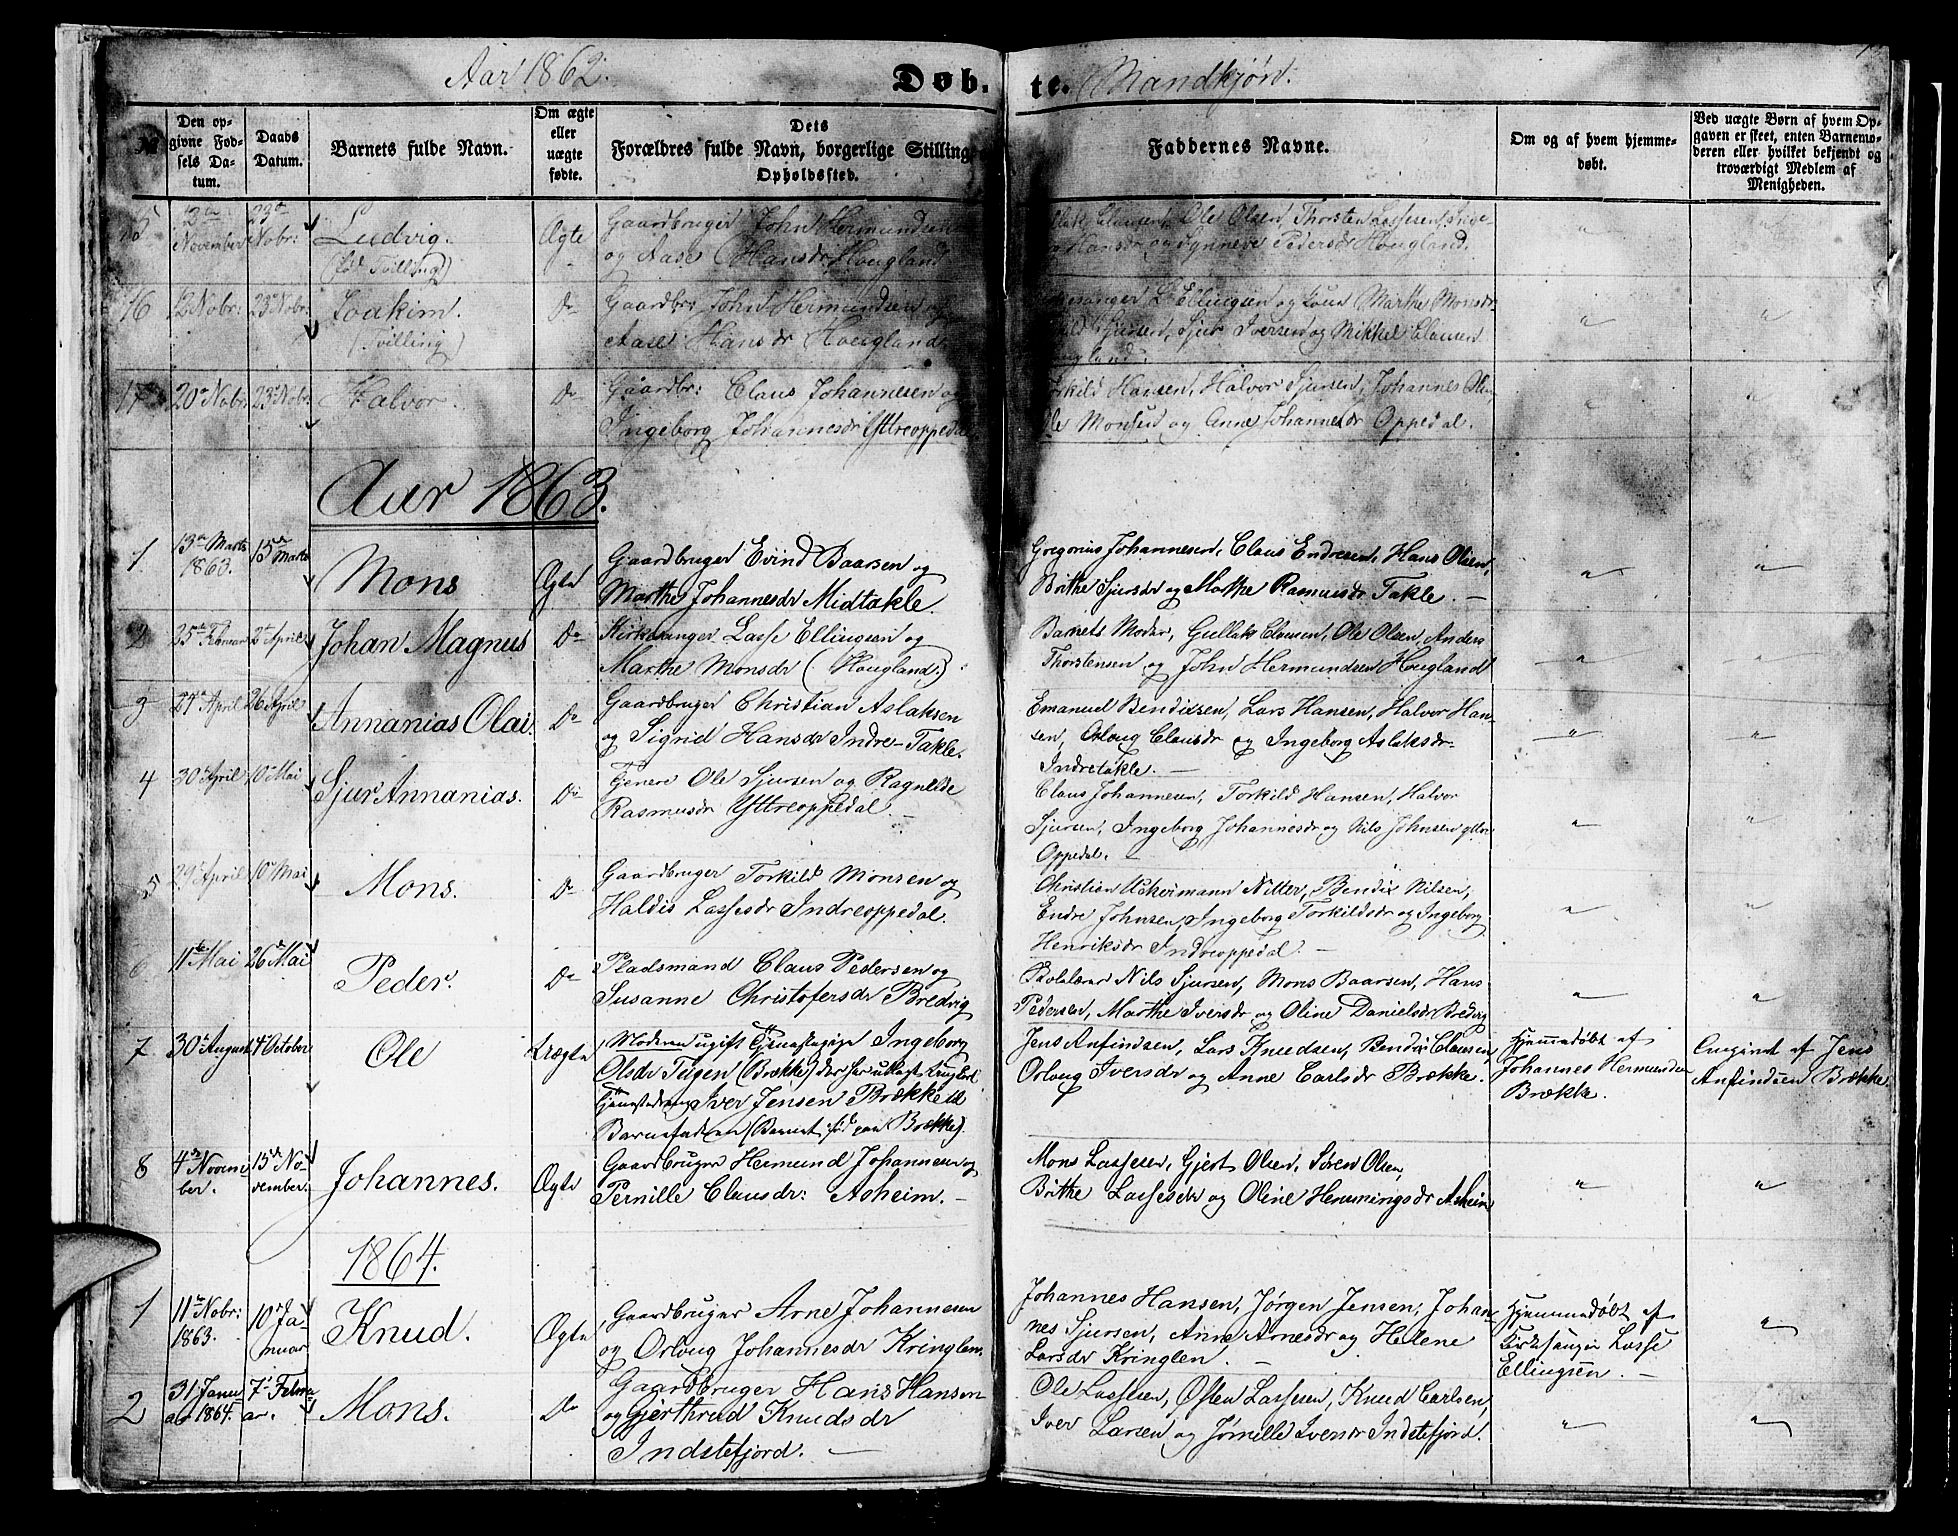 Aar 1862.
Døb-
te. Mandkjøn.
№
Den op-
givne Fød-
sels Da-
tum.
Daabs
Datum.
Barnets fulde Navn.
Om ægte
eller
uægte
fødte.
Dets
Forældres fulde Navn, borgerlige Stilling,
Opholdssted.
Faddernes Navne.
Om og af hvem hjemme-
døbt.
Ved uægte Børn af hvem Op-
gaven er skeet, enten Barnemo-
deren eller hvilket bekjendt og
troværdigt Medlem af
Menigheden.
12te November 23de Nobr: Ludvig. (fød Tvilling) Ægte
Gaardbruger John Hermundsen
og Aase Hansdr Hougland
Clausen, Ole Olsen, Thorsten Lassesen,
Hansdr og Synneve Pedersdr Hougland.
16 12 Nobr: 23de Nobr: Joakim. (Tvilling) Do
Gaardbr John Hermundsen og
Aase Hansdr Hougland
L. Ellingsen og Kone Marthe Monsdr
Sjursen, Sjur Iversen og Mikkel Clausen
17 20de Nobr. 23de Nobr. Halvor. Do
Gaardbr: Claus Johannesen og
Ingeborg Johannesdr Yttreoppedal
Torkild Hansen, Halvor Sjursen, Johannes
Ole Monsen og Anne Johannesdr Oppedal.
Aar 1863.
1. 13de Marts 1863. 15de Marts Mons Ægte
Gaardbruger Evind Baarsen og
Marthe Johannesdr Midtakle.
Gregorius Johannesen, Claus Endresen, Hans Olsen,
Brithe Sjursdr og Marthe Rasmusdr Takle. —
2 25de Februar 2de April Johan Magnus Do
Kirkesanger Lasse Ellingsen og
Marthe Monsdr (Hougland).
Barnets Moder, Gullak Clausen, Ole Olsen, Anders
Thorstensen og John Hermundsen Hougland
3 24de April 26 April Annanias Olai. Do
Gaardbruger Christian Aslaksen
og Sigrid Hansdr Indre-Takle.
Emanuel Bendixsen, Lars Hansen, Halvor Han-
sen, Orloug Clausdr og Ingeborg Aslaksdr
Indretakle. —
4 30te April 10de Mai Sjur Annanias. Do
Ole Sjursen og Ragnilde
Rasmusdr Yttreoppedal. —
Claus Johannesen, Torkild Hansen, Halvor
Sjursen, Ingeborg Johannesdr og Nils Johnsen Yttre
Oppedal. —
5 29de April 10de Mai Mons. Do
Gaardbruger Torkild Monsen og
Haldis Lassesdr Indreoppedal.
Christian Uckermann Nitter, Bendix Nilsen,
Endre Johnsen, Ingeborg Torkildsdr og Ingeborg
Henriksdr Indreoppedal —
6 11te Mai 26de Mai Peder. Do
Pladsmand Claus Pedersen og
Susanne Christofersdr Bredvig
Skolelærer Nils Sjursen, Mons Baarsen, Hans
Pedersen, Marthe Iversdr og Oline Danielsdr Bredvig
7 30te August 4de October Ole Uægte
Moderen ugift Tjenestepige Ingeborg
Olsdr Tegen (Brække) der har udlagt Ungkarl
Tjenestedreng Iver Jensen Brække til
Barnefaderen (Barnet fød paa Brække).
Jens Anfindsen, Lars Knudsen, Bendix Clausen,
Orloug Iversdr og Anne Carlsdr Brække.
Hjemmedøbt af
Johannes Hermundsen
Brække.
Omgivet af Jens
Anfindsen Brække.
8 4de Novem-
ber. 15de No-
vember. Johannes. Ægte
Gaardbruger Hermund Johannesen og
Pernille Clausdr: Asheim. —
Mons Lassesen, Gjert Olsen, Søren Olsen,
Brithe Lassesdr og Oline Hemmingsdr Asheim
1864.
1 11te Nobr: 1863. 10de Ja-
nuar Knud. Ægte
Gaardbruger Arne Johannesen
og Orloug Johannesdr Kringlen.
Johannes Hansen, Jørgen Jensen, Johan-
nes Sjursen, Anne Arnesdr og Helene
Larsdr Kringlen. —
Hjemmedøbt af
Kirkesanger Lasse
Ellingsen. —
2 31 Janu-
ar 1864. 7de Febru-
ar. Mons. Do
Gaardbruger Hans Hansen
og Gjerthrud Knudsdr
Indstefjord. —
Ole Lassesen, Østen Lassesen, Knud Carlsen,
Iver Larsen og Jørnille Iversdr Indstefjord.